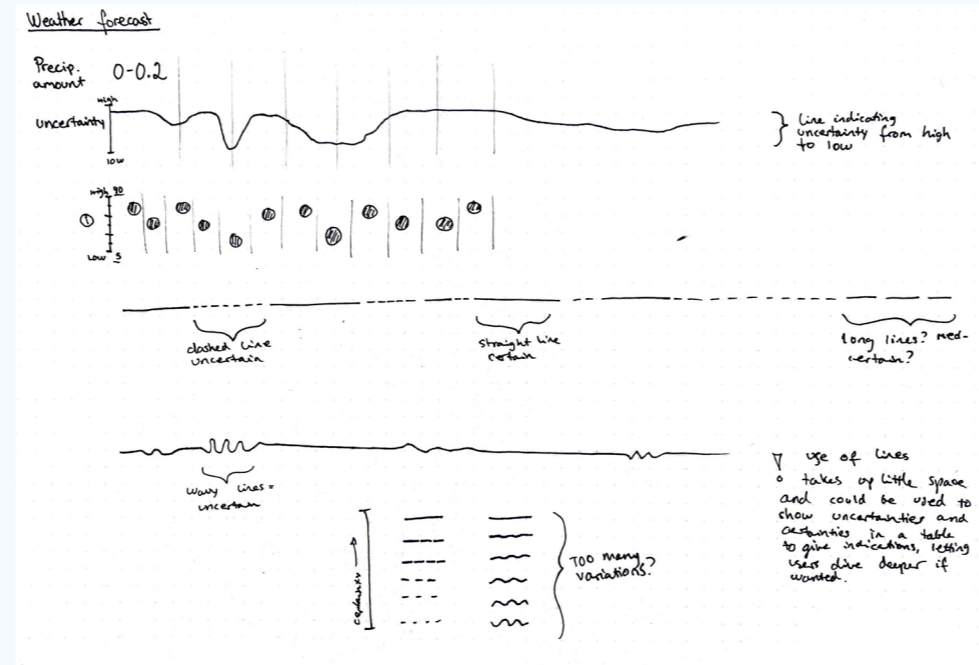 Weather forecast
Precip.
amount
0-0.2
High
uncertainty
low
} Line indicating
uncertainty from high
to low
High 90
Low 5
dashed line
uncertain
straight line
certain
long lines? Med-
certain?
wavy lines =
uncertain
use of lines
takes up little space
and could be used to
show uncertainties and
certainties in a table
to give indications, letting
users dive deeper if
wanted.
TOO many
variations?